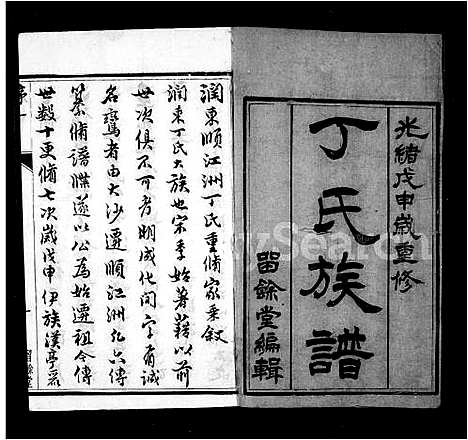 光緒戊申歲重修
丁氏族譜
留餘堂編輯
潤東順江洲丁氏重脩家乘叙
潤東丁氏大族也宋季始著籍以前
世次俱不可考明成化間字有誠
名鸞者由大沙遷順江洲凡六傳
纂脩譜牒遂以公為始遷祖今傳
世數十更脩七次歲戊申伊族漢亭
序一